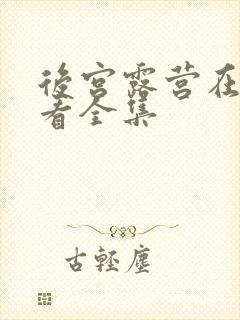 後宫露营在
看全集
古輕塵